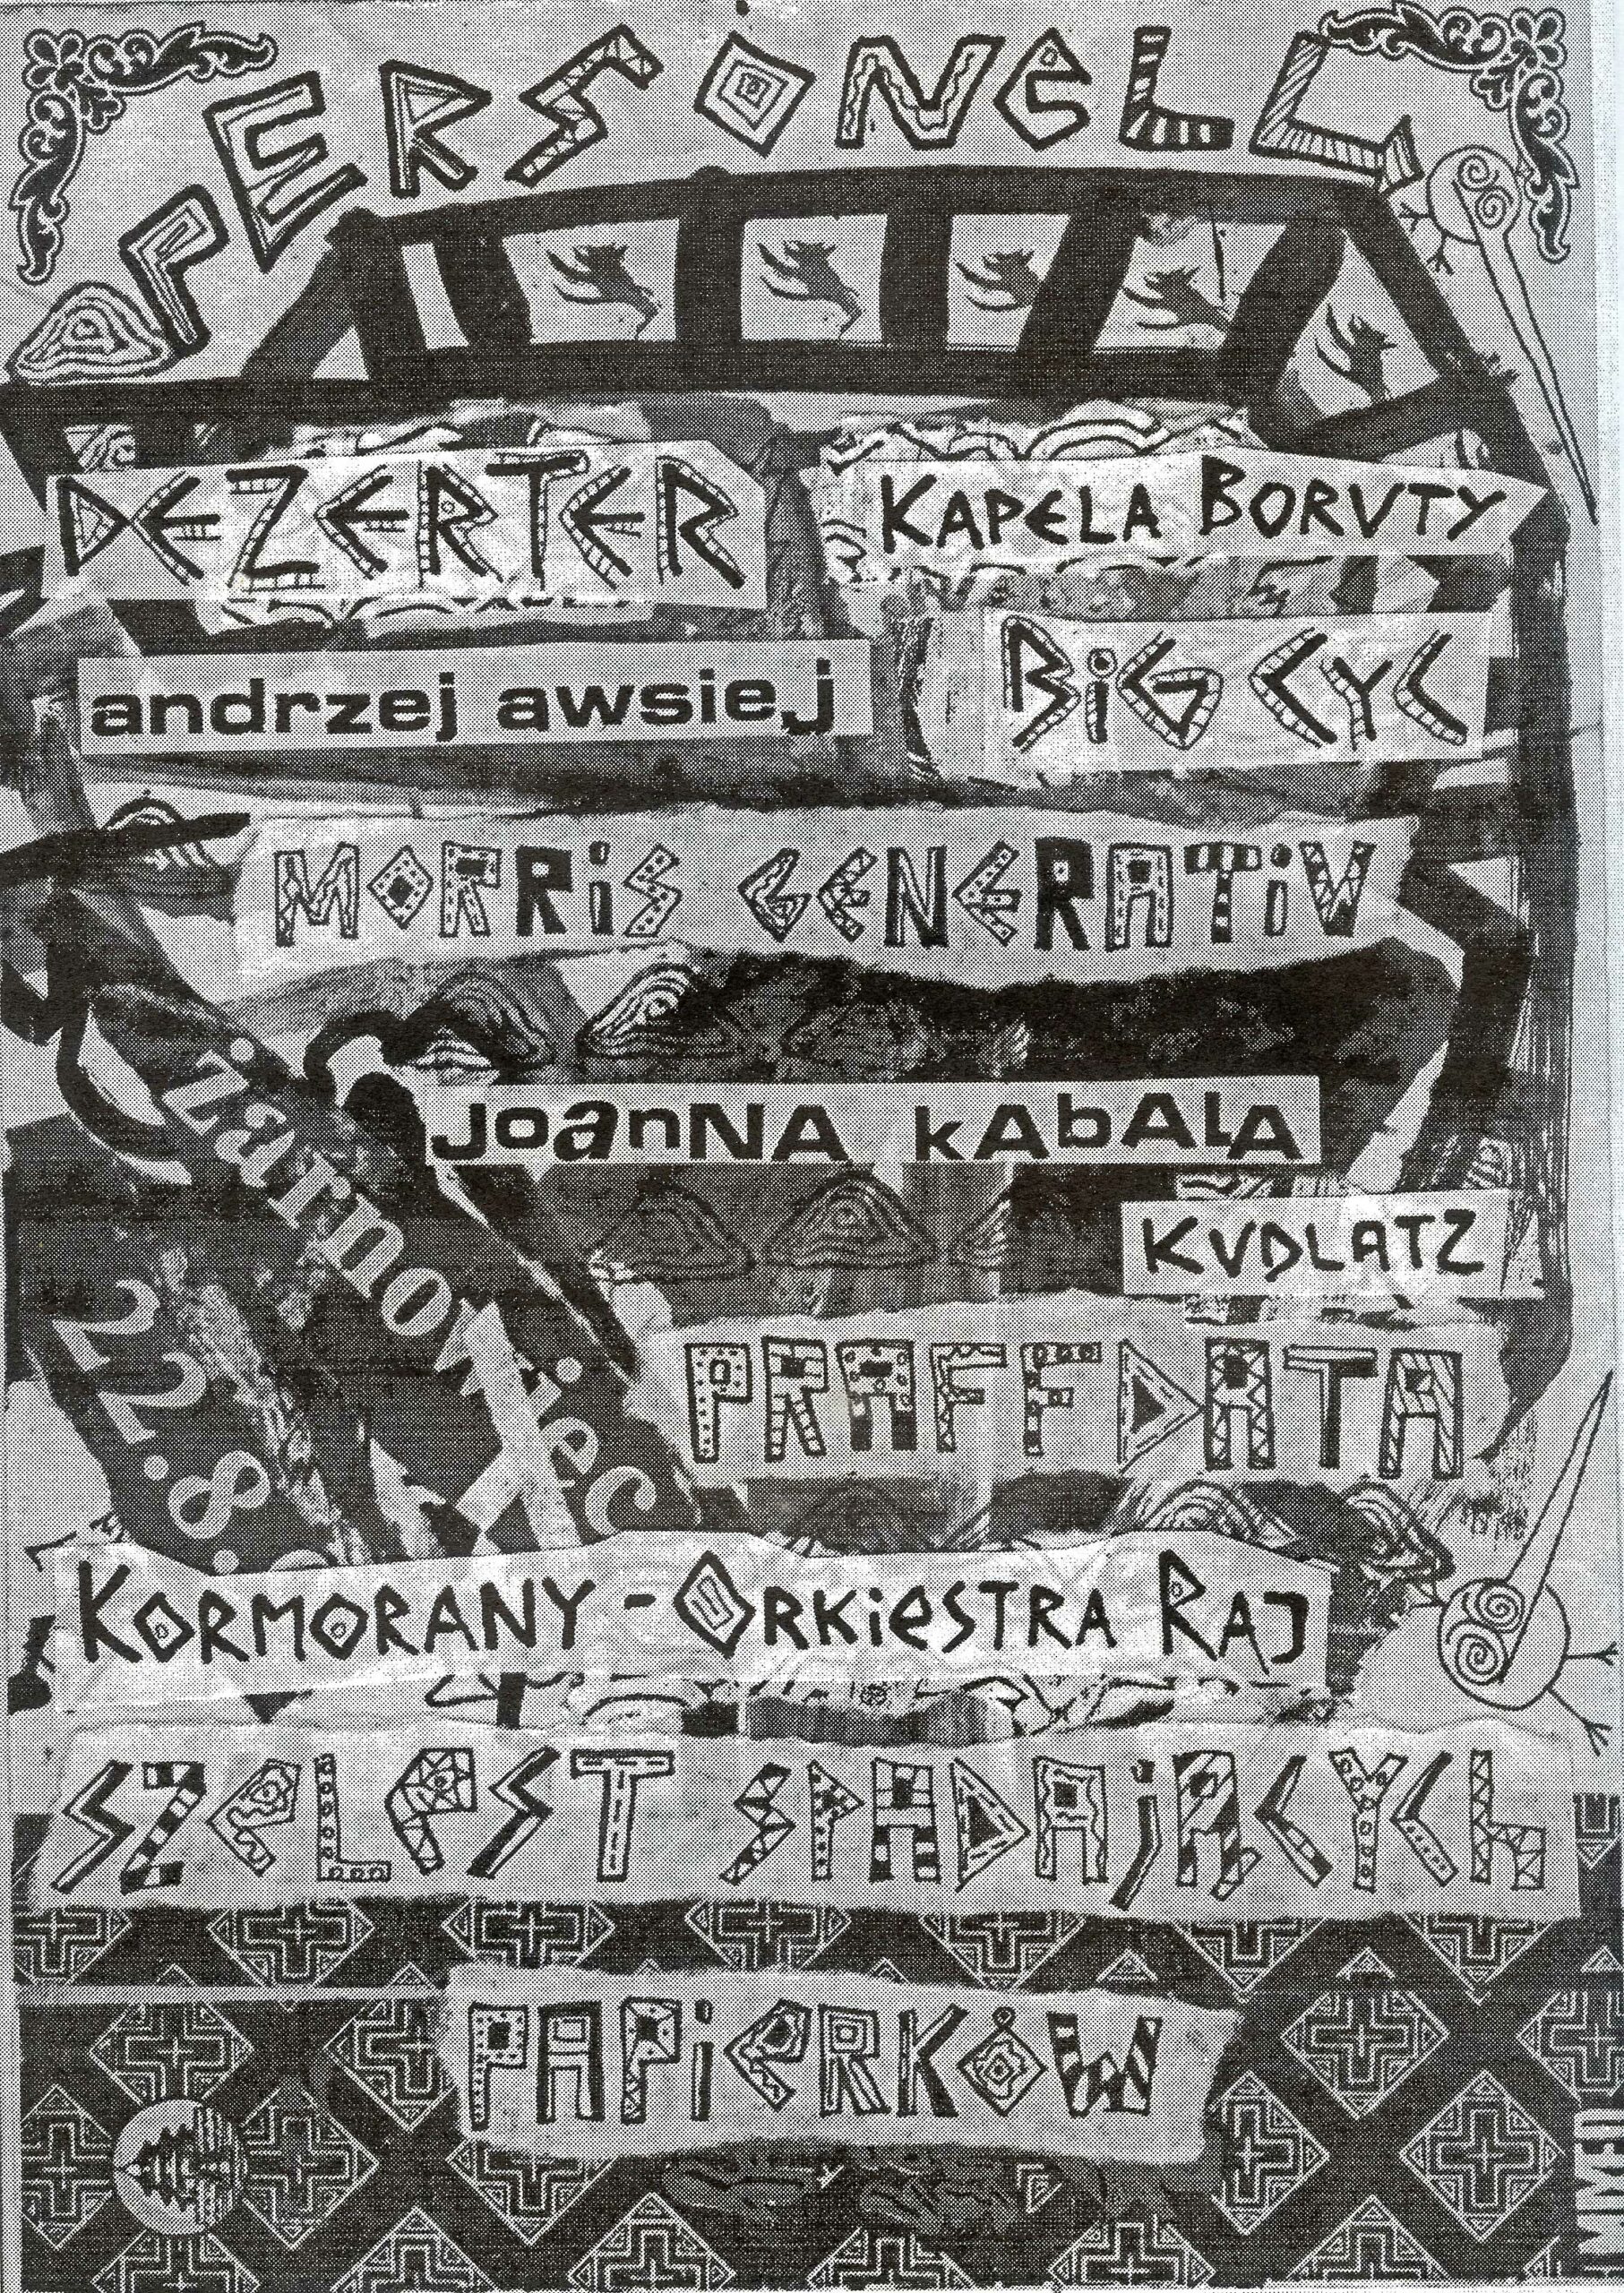 PERSONELL
DEZERTER
KAPELA BORUTY
andrzej awsiej
BiG CYC
MORRiS GENERATiV
żarnowiec
22.8.
JoanNA kAbALA
KUDLATZ
PRAFFDATA
KORMORANY - ORKieSTRA RAJ
SZeLeST SPADAjĄCYCh
PAPieRKÓW